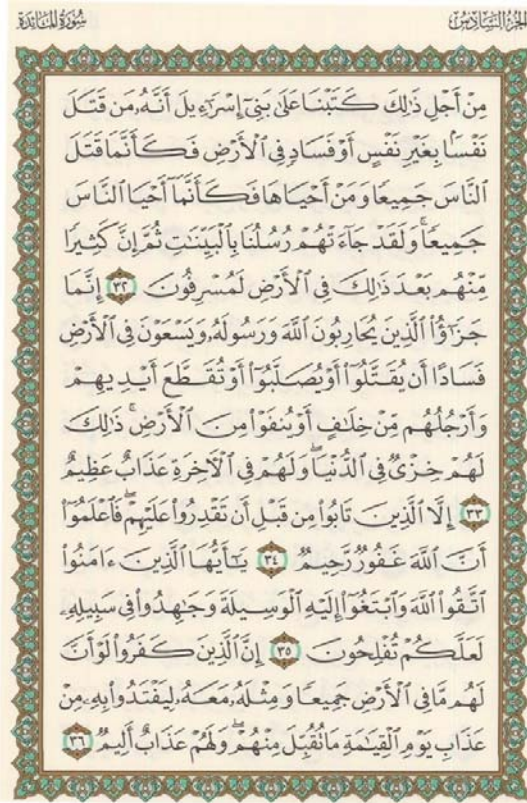 الجزء السادس
سورة المائدة
مِنْ أَجْلِ ذَٰلِكَ كَتَبْنَا عَلَىٰ بَنِىٓ إِسْرَٰٓءِيلَ أَنَّهُۥ مَن قَتَلَ
نَفْسًۢا بِغَيْرِ نَفْسٍ أَوْ فَسَادٍ فِى ٱلْأَرْضِ فَكَأَنَّمَا قَتَلَ
ٱلنَّاسَ جَمِيعًا وَمَنْ أَحْيَاهَا فَكَأَنَّمَآ أَحْيَا ٱلنَّاسَ
جَمِيعًاۚ وَلَقَدْ جَآءَتْهُمْ رُسُلُنَا بِٱلْبَيِّنَٰتِ ثُمَّ إِنَّ كَثِيرًا
مِّنْهُم بَعْدَ ذَٰلِكَ فِى ٱلْأَرْضِ لَمُسْرِفُونَ ٣٢ إِنَّمَا
جَزَٰٓؤُا۟ ٱلَّذِينَ يُحَارِبُونَ ٱللَّهَ وَرَسُولَهُۥ وَيَسْعَوْنَ فِى ٱلْأَرْضِ
فَسَادًا أَن يُقَتَّلُوٓا۟ أَوْ يُصَلَّبُوٓا۟ أَوْ تُقَطَّعَ أَيْدِيهِمْ
وَأَرْجُلُهُم مِّنْ خِلَٰفٍ أَوْ يُنفَوْا۟ مِنَ ٱلْأَرْضِۚ ذَٰلِكَ
لَهُمْ خِزْىٌ فِى ٱلدُّنْيَاۖ وَلَهُمْ فِى ٱلْآخِرَةِ عَذَابٌ عَظِيمٌ
٣٣ إِلَّا ٱلَّذِينَ تَابُوا۟ مِن قَبْلِ أَن تَقْدِرُوا۟ عَلَيْهِمْۖ فَٱعْلَمُوٓا۟
أَنَّ ٱللَّهَ غَفُورٌ رَّحِيمٌ ٣٤ يَٰٓأَيُّهَا ٱلَّذِينَ ءَامَنُوا۟
ٱتَّقُوا۟ ٱللَّهَ وَٱبْتَغُوٓا۟ إِلَيْهِ ٱلْوَسِيلَةَ وَجَٰهِدُوا۟ فِى سَبِيلِهِۦ
لَعَلَّكُمْ تُفْلِحُونَ ٣٥ إِنَّ ٱلَّذِينَ كَفَرُوا۟ لَوْ أَنَّ
لَهُم مَّا فِى ٱلْأَرْضِ جَمِيعًا وَمِثْلَهُۥ مَعَهُۥ لِيَفْتَدُوا۟ بِهِۦ مِنْ
عَذَابِ يَوْمِ ٱلْقِيَٰمَةِ مَا تُقُبِّلَ مِنْهُمْۖ وَلَهُمْ عَذَابٌ أَلِيمٌ ٣٦